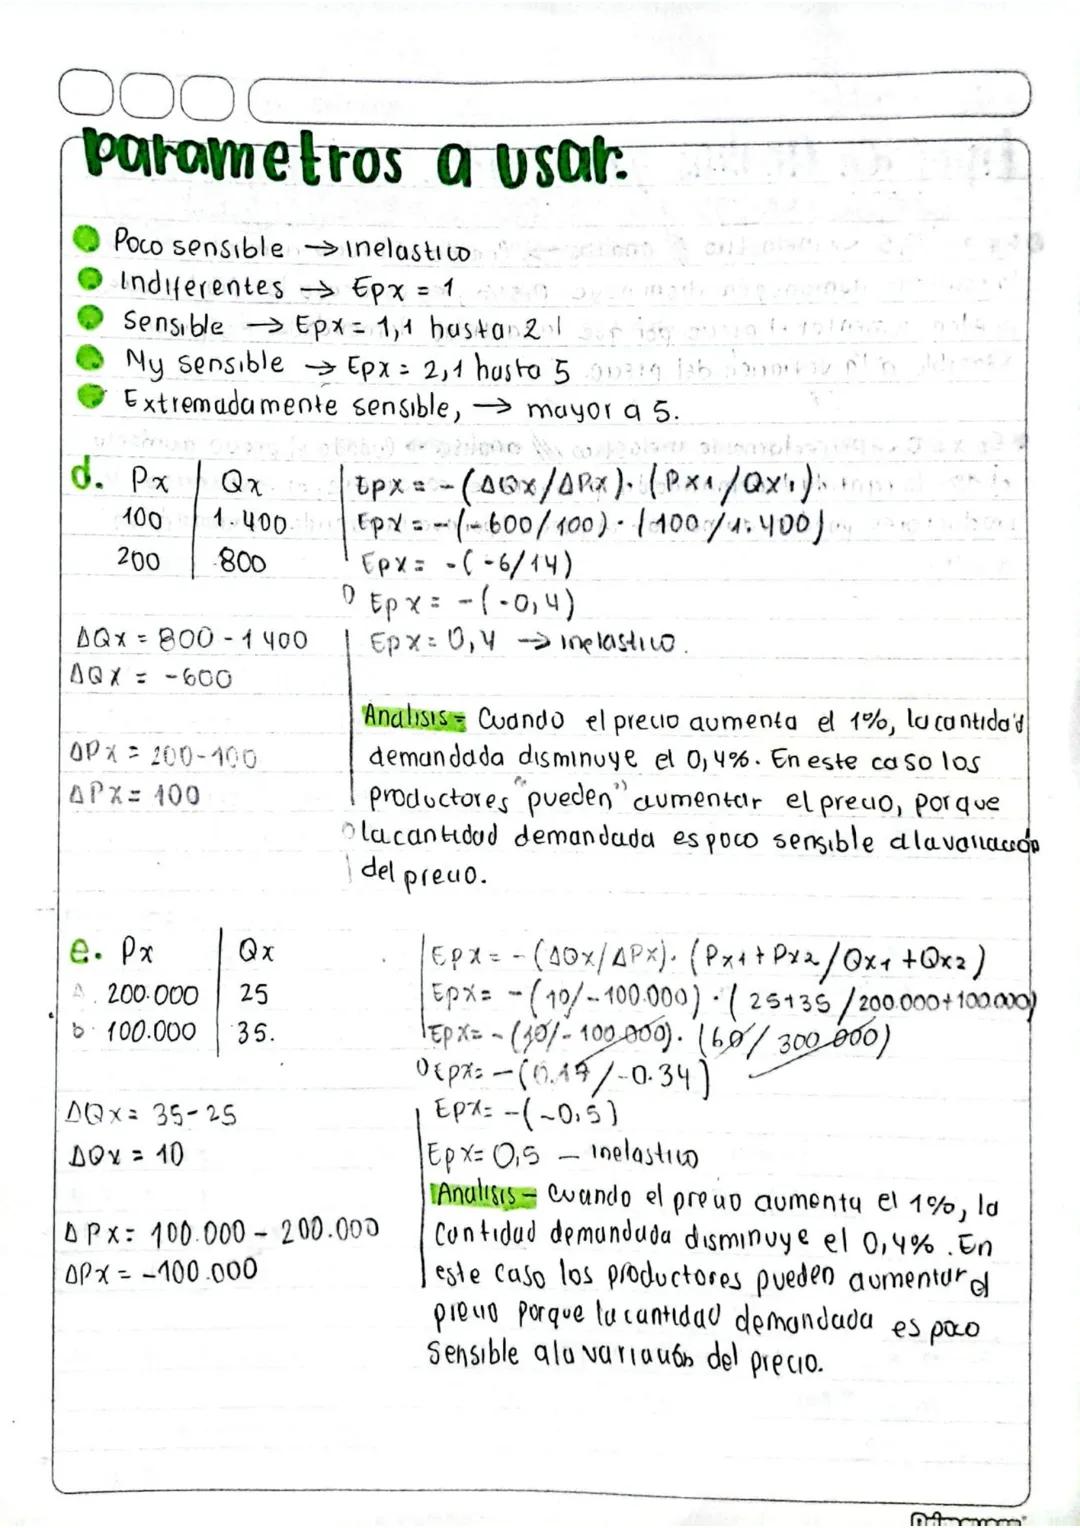 parametros a usar.
Poco sensible → inelastico
Indiferentes → Epx = 1
Sensible → Epx = 1,1 hasta 2
My sensible → Epx = 2,1 hasta 5
Extremadamente sensible, → mayor a 5.
d. Px | Qx
100 | 1.400
200 | 800
ΔQx = 800 - 1400
ΔQx = -600
ΔPx = 200-100
ΔPx = 100
Epx = - (ΔQx/ΔPx). (Px1/Qx1)
Epx = -(-600/100) · (100/1.400)
Epx = -(-6/14)
Epx = -(-0,4)
Epx = 0,4 → inelastico.
Analisis = Cuando el precio aumenta el 1%, la cantidad
demandada disminuye el 0,4%. En este caso los
productores "pueden" aumentar el precio, porque
la cantidad demandada es poco sensible a la variacion
del precio.
e. Px | Qx
a. 200.000 | 25
b. 100.000 | 35.
ΔQx = 35-25
ΔQx = 10
ΔPx = 100.000 - 200.000
ΔPx = -100.000
Epx = - (ΔQx/ΔPx). (Px1 + Px2/Qx1 + Qx2)
Epx = -(10/-100.000) · (25+35/200.000+100.000)
Epx = -(10/-100.000). (60/300.000)
Epx = -(0.17/-0.34)
Epx = -(-0,5)
Epx = 0,5 - inelastico
Analisis - Cuando el precio aumenta el 1%, la
Cantidad demandada disminuye el 0,4%. En
este caso los productores pueden aumentar el
precio porque la cantidad demandada es poco
Sensible a la variación del precio.